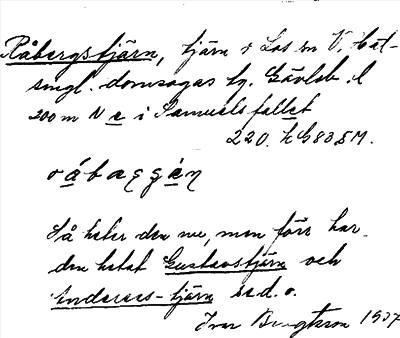 Råbergstjärn, tjärn i Los sn V. Häl-
singl. domsagas tg. Gävleb. l
200 m N e i Samuelsfallet
220. k G 83 SM.
råbaggán
Så heter den nu, men förr har
den hetat Gustavstjärn och
Anderses-tjärn s.d.o.
Ivar Bengtsson 1937